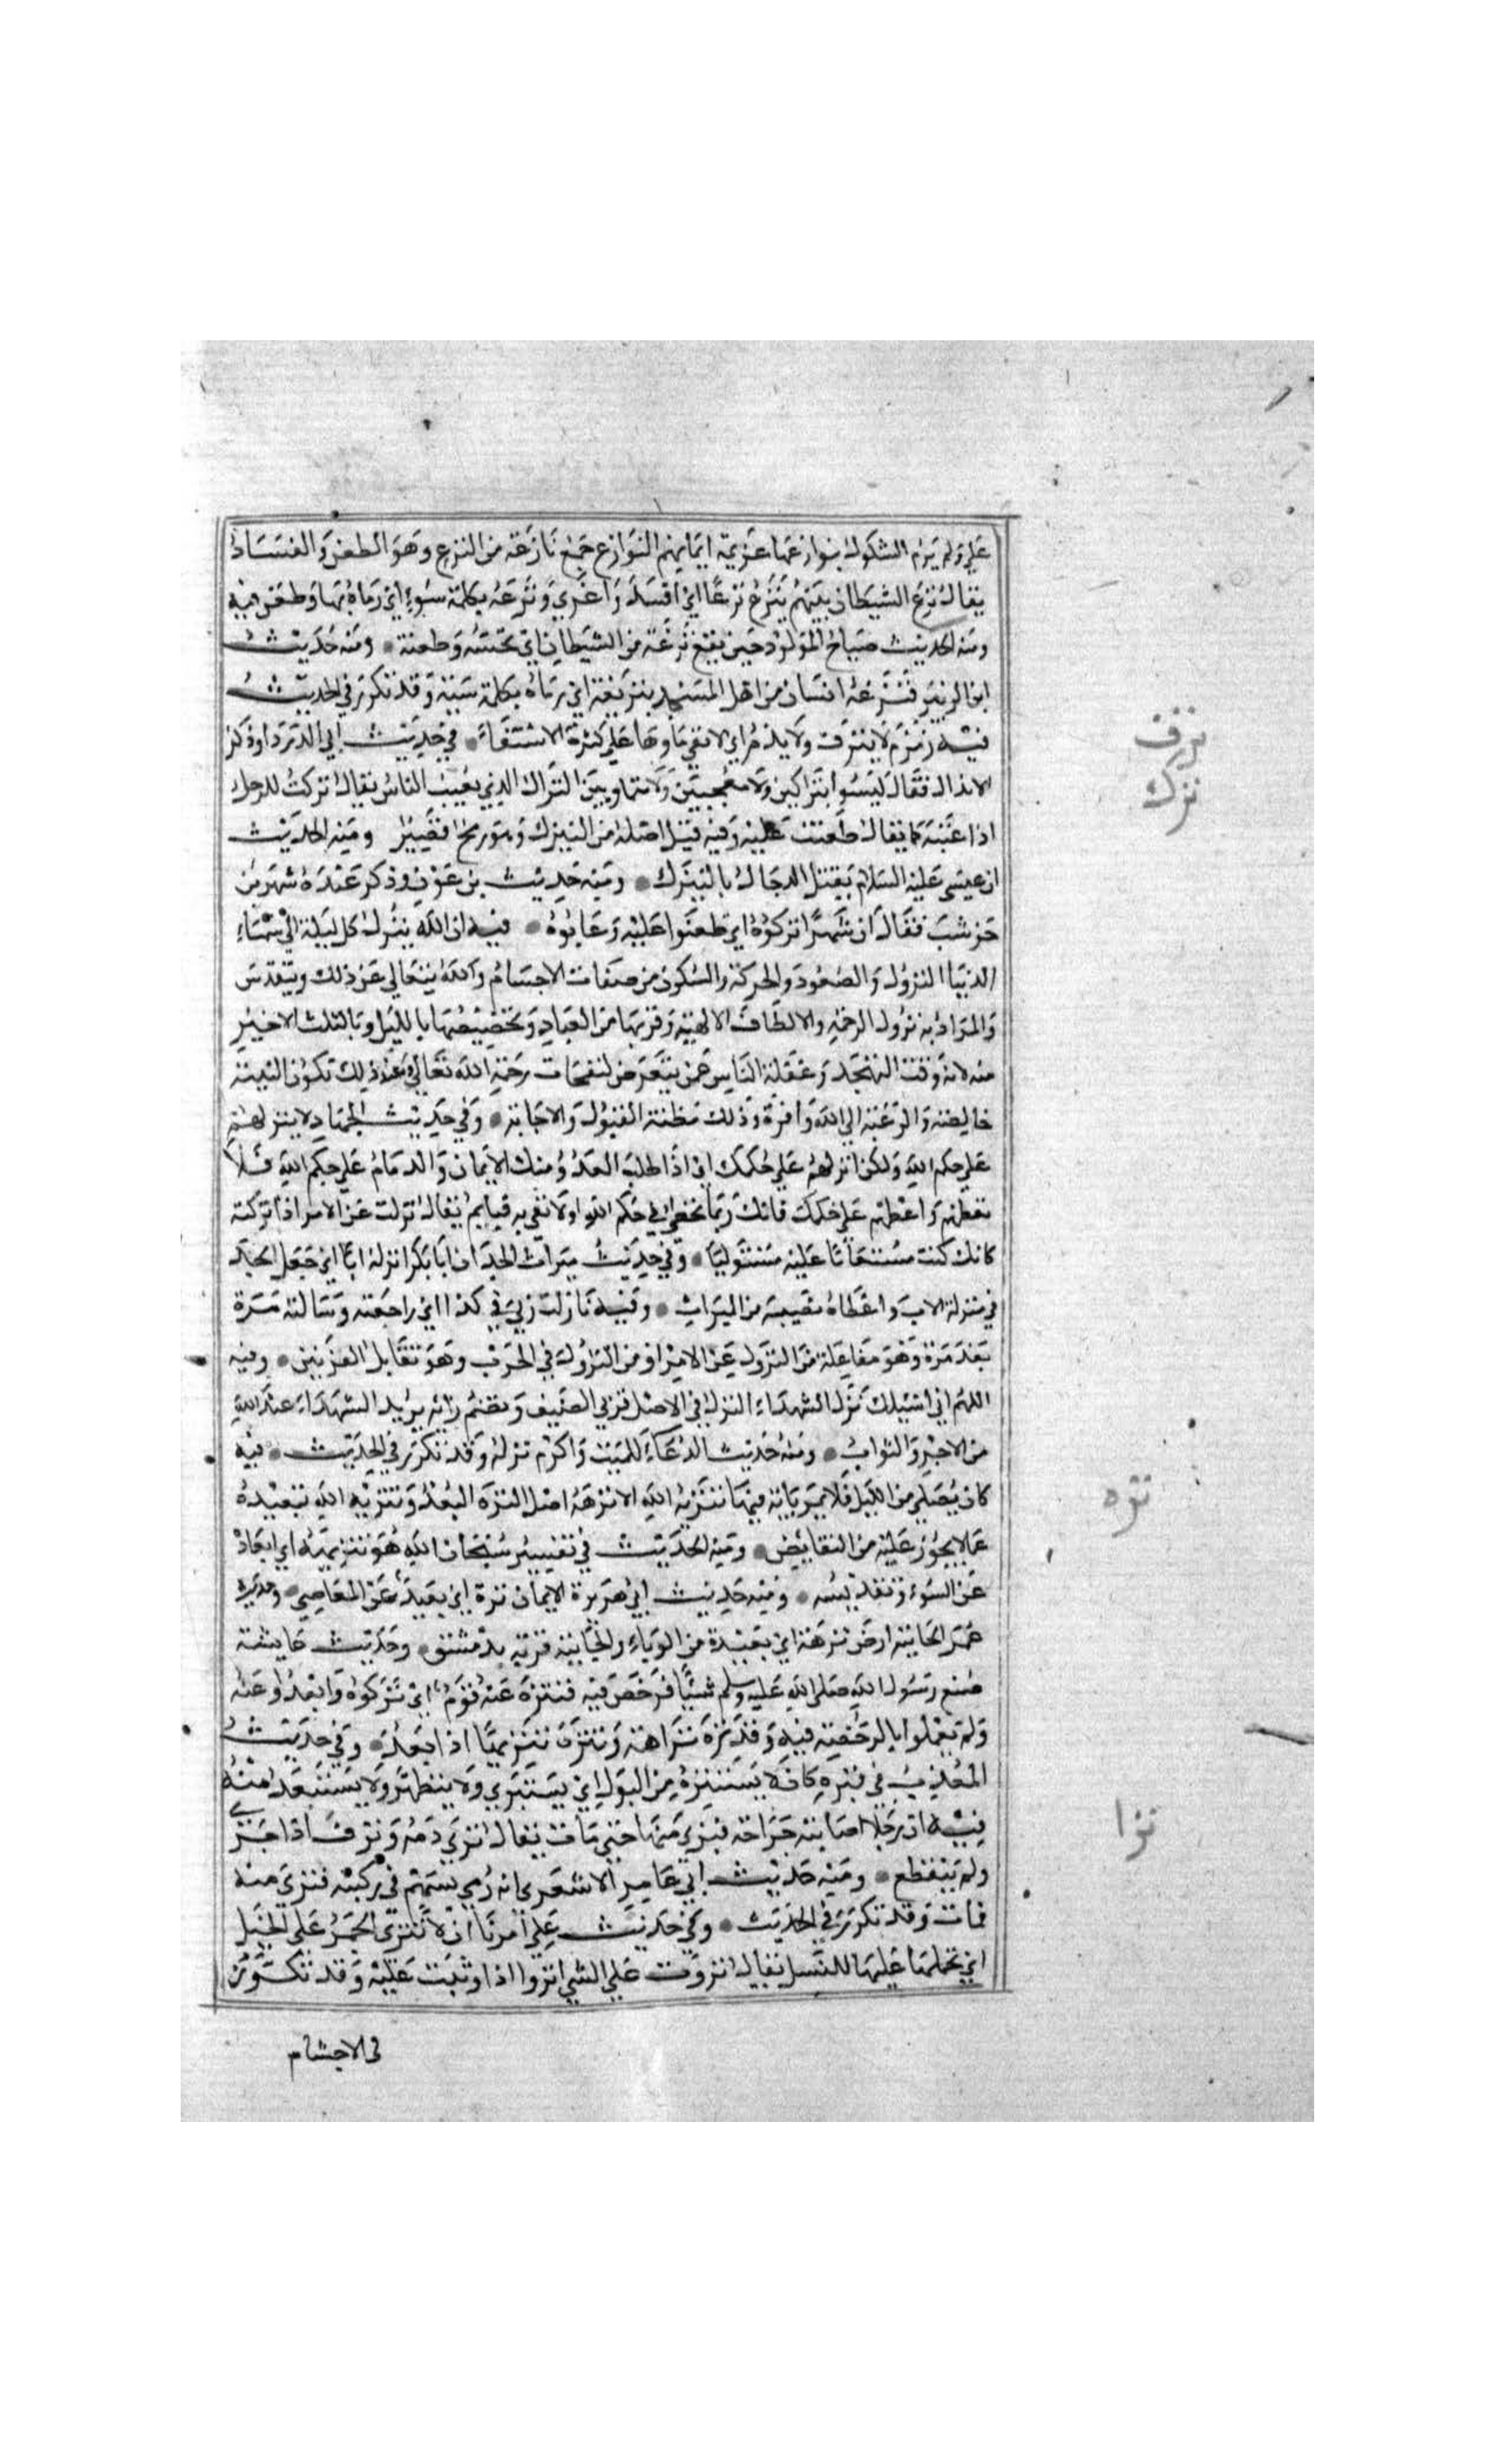 علي ولم يرم الشكوك بنوازغها عزيمة ايمانهم النوازغ جمع نازغة من النزغ وهو الطعن والفساد
يقال نزغ الشيطان بينهم ينزغ نزغا اي افسد واغري ونزغه بكلمة سوء اي رماه بها وطعن فيه
ومنه الحديث صياح المولود حين يقع نزغة من الشيطان اي نخسه وطعنة ومنه حديث
ابن الزبير فنزغه انسان من اهل المسجد بنزيغة اي رماه بكلمة سيئة وقد تكرر في الحديث
فيه زمزم لا ينزف ولا يذم اي لا يفني ماوها علي كثرة الاستقاء في حديث ابي الدرداء وذكر
الابدال فقال ليسوا بنزاكين ولا معجبين ولا متماوتين النزاك الذي يعيب الناس يقال نزكت الرجل
اذا عبته كما يقال طعنت عليه وفيه قيل اصله من النيزك وهو رمح قصير ومنه الحديث
ان عيسي عليه السلام يقتل الدجال بالنيزك ومنه حديث بن عون وذكر عنده شهر بن
حوشب فقال ان شهرا نزكوه اي طعنوا عليه وعابوه فيه ان الله ينزل كل ليلة الي سماء
الدنيا النزول والصعود والحركة والسكون من صفات الاجسام والله يتعالي عن ذلك ويتقدس
والمراد به نزول الرحمة والالطاف الالهية وقربها من العباد وتخصيصها بالليل وبالثلث الاخير
منه لانه وقت التهجد وغفلة الناس عمن يتعرض لنفحات رحمة الله تعالي وعند ذلك تكون النية
خالصة والرغبة الي الله وافرة وذلك مظنة القبول والاجابة وفي حديث الجهاد لا ينزلهم
علي حكم الله ولكن انزلهم علي حكمك اي اذا طلب العدو منك الايمان والذمام علي حكم الله فلا
تعطهم واعطهم علي حكمك فانك ربما تخطي في حكم الله او لا تفي به فياثم يقال نزلت عن الامر اذا تركته
كانك كنت مستعليا عليه مستوليا وفي حديث ميراث الجد ان ابا بكر انزله ابا اي جعل الجد
في منزلة الاب واعطاه نصيبه من الميراث وفيه نازلت ربي في كذا اي راجعته وسالته مرة
بعد مرة وهو مفاعلة من النزول عن الامر او من النزول في الحرب وهو تقابل القرنين وفيه
اللهم اني اسيلك نزل الشهداء النزل في الاصل قري الضيف وتضم زايه يريد الشهداء عند الله
من الاجر والثواب ومنه حديث الدعاء للميت واكرم نزله وقد تكرر في الحديث فيه
كان يصلي من الليل فلا يمر باية فيها تنزيه الله الا نزهه اصل النزه البعد وتنزيه الله تبعيده
عما لا يجوز عليه من النقايص ومنه الحديث في تفسير سبحان الله هو تنزيهه اي ابعاده
عن السوء وتقديسه ومنه حديث ابي هريرة الايمان نزه اي بعيد عن المعاصي وحديث
عمر الجابية ارض نزهة اي بعيدة من الوباء والجابية قرية بدمشق وحديث عايشة
صنع رسول الله صلي الله عليه وسلم شيئا فرخص فيه فتنزه عنه قوم اي تركوه وابعدوا عنه
ولم يعملوا بالرخصة فيه وقد نزه نزاهة وتنزه تنزيها اذا بعد وفي حديث
المعذب في قبره كان لا يستنزه من البول اي يستبري ولا يتطهر ولا يستبعد منه
فيه ان رجلا اصابته جراحة فنزي منها حتي مات يقال نزي دمه ونزف اذا جري
ولم ينقطع ومنه حديث ابي عامر الاشعري انه رمي بسهم في ركبته فنزي منه
فمات وقد تكرر في الحديث وفي حديث علي امرنا ان لا ننزي الحمر علي الخيل
اي نحملها عليها للنسل يقال نزوت علي الشي انزوا اذا وثبت عليه وقد تكون
في الاجسام
نزف
نزك
نزه
نزا